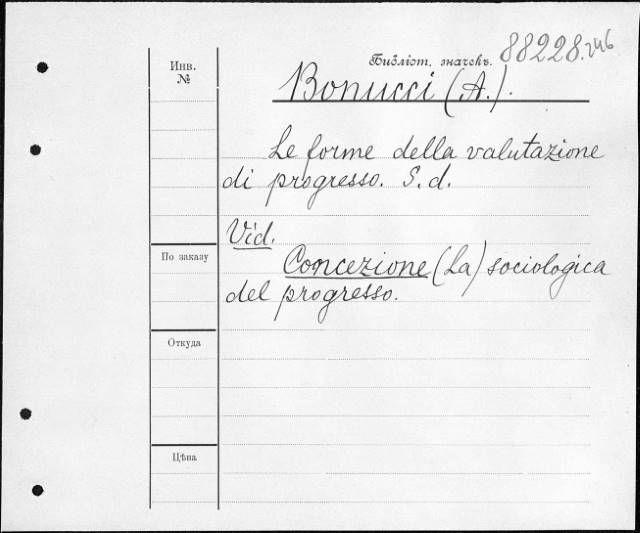 Инв.
№
Библіот. значекъ.
88228.246
Bonucci (A.).
Le forme della valutazione
di progresso. S. d.
Vid.
Concezione (La) sociologica
del progresso.
По заказу
Откуда
Цѣна